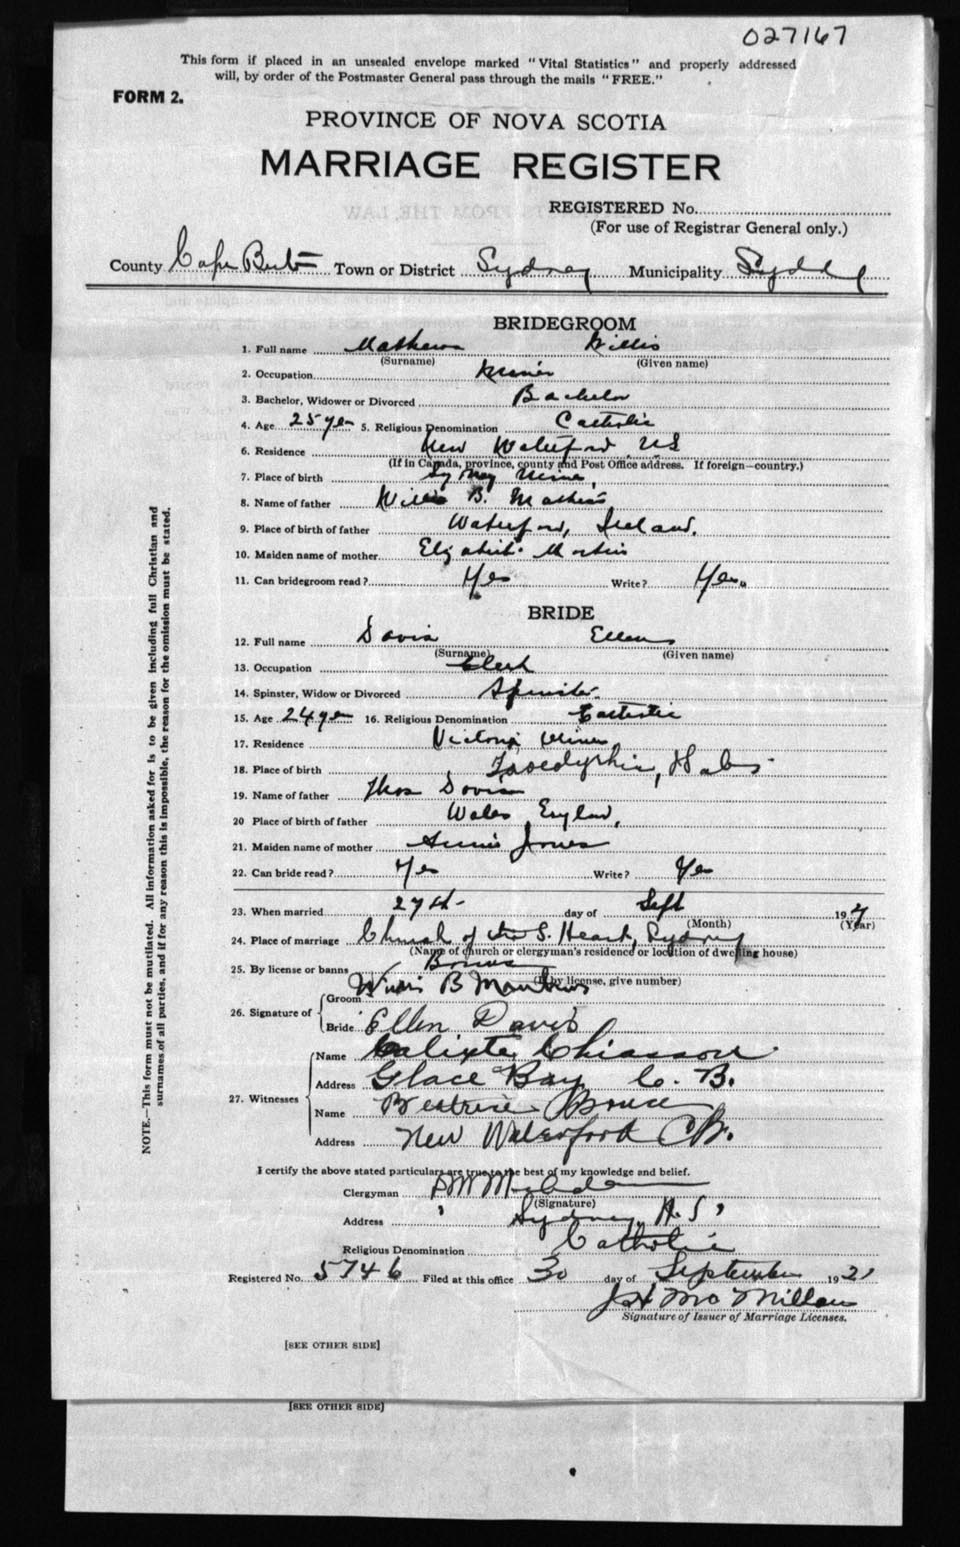 027167
This form if placed in an unsealed envelope marked "Vital Statistics" and properly addressed
will, by order of the Postmaster General pass through the mails "FREE."
FORM 2.
PROVINCE OF NOVA SCOTIA
MARRIAGE REGISTER
REGISTERED No.
(For use of Registrar General only.)
County Cape Breton Town or District Sydney Municipality Sydney
BRIDEGROOM
1. Full name Mathews Willis
(Surname) (Given name)
2. Occupation Miner
3. Bachelor, Widower or Divorced Bachelor
4. Age 25 yrs 5. Religious Denomination Catholic
6. Residence New Waterford NS
(If in Canada, province, county and Post Office address. If foreign—country.)
7. Place of birth Sydney Mines,
8. Name of father Willis B. Mathews
9. Place of birth of father Waterford, Ireland.
10. Maiden name of mother Elizabeth Martin
11. Can bridegroom read? Yes Write? Yes.
BRIDE
12. Full name Davis Ellen
(Surname) (Given name)
13. Occupation Clerk
14. Spinster, Widow or Divorced Spinster
15. Age 24 yrs 16. Religious Denomination Catholic
17. Residence Victoria Mines
18. Place of birth Wales
19. Name of father Thos Davis
20 Place of birth of father Wales England,
21. Maiden name of mother Annie Jones
22. Can bride read? Yes Write? Yes
23. When married 27th day of Sept 19
(Month) (Year)
24. Place of marriage Church of the S. Heart, Sydney
(Name of church or clergyman's residence or location of dwelling house)
25. By license or banns Banns
(If by license, give number)
26. Signature of
Groom Willis B Mathews
Bride Ellen Davis
27. Witnesses
Name Calixte Chiasson
Address Glace Bay C. B.
Name Beatrice
Address New Waterford CB.
I certify the above stated particulars are true to the best of my knowledge and belief.
Clergyman
(Signature)
Address Sydney N.S.
Religious Denomination Catholic
Registered No. 5746 Filed at this office 30 day of September 1921
J H McMillan
Signature of Issuer of Marriage Licenses.
[SEE OTHER SIDE]
[SEE OTHER SIDE]
NOTE.—This form must not be mutilated. All information asked for is to be given including full Christian and
surnames of all parties, and if for any reason this is impossible, the reason for the omission must be stated.